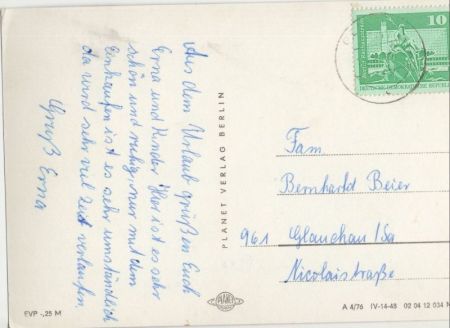 Aus dem Urlaub grüßen Euch
Erna und Kinder Hier ist es sehr
schön und ruhig, nur mit dem
Einkaufen ist es sehr umständlich
da wird sehr viel Zeit verlaufen.
Gruß Erna
PLANET VERLAG BERLIN
10
DEUTSCHE DEMOKRATISCHE REPUBLIK
Fam
Bernhard Beier
961 Glauchau/Sa
Nicolaistraße
EVP -,25 M
PLANET
A 4/76 IV-14-48 02 04 12 034